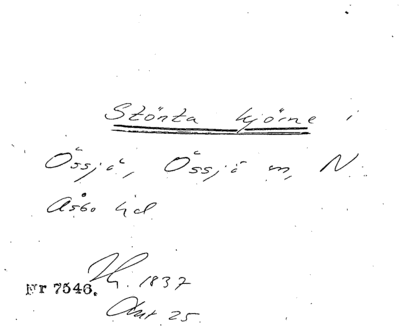 Störta kjörne i
Össjö, Össjö sn, N.
Åsbo hd
1837
Nr 7546.
25